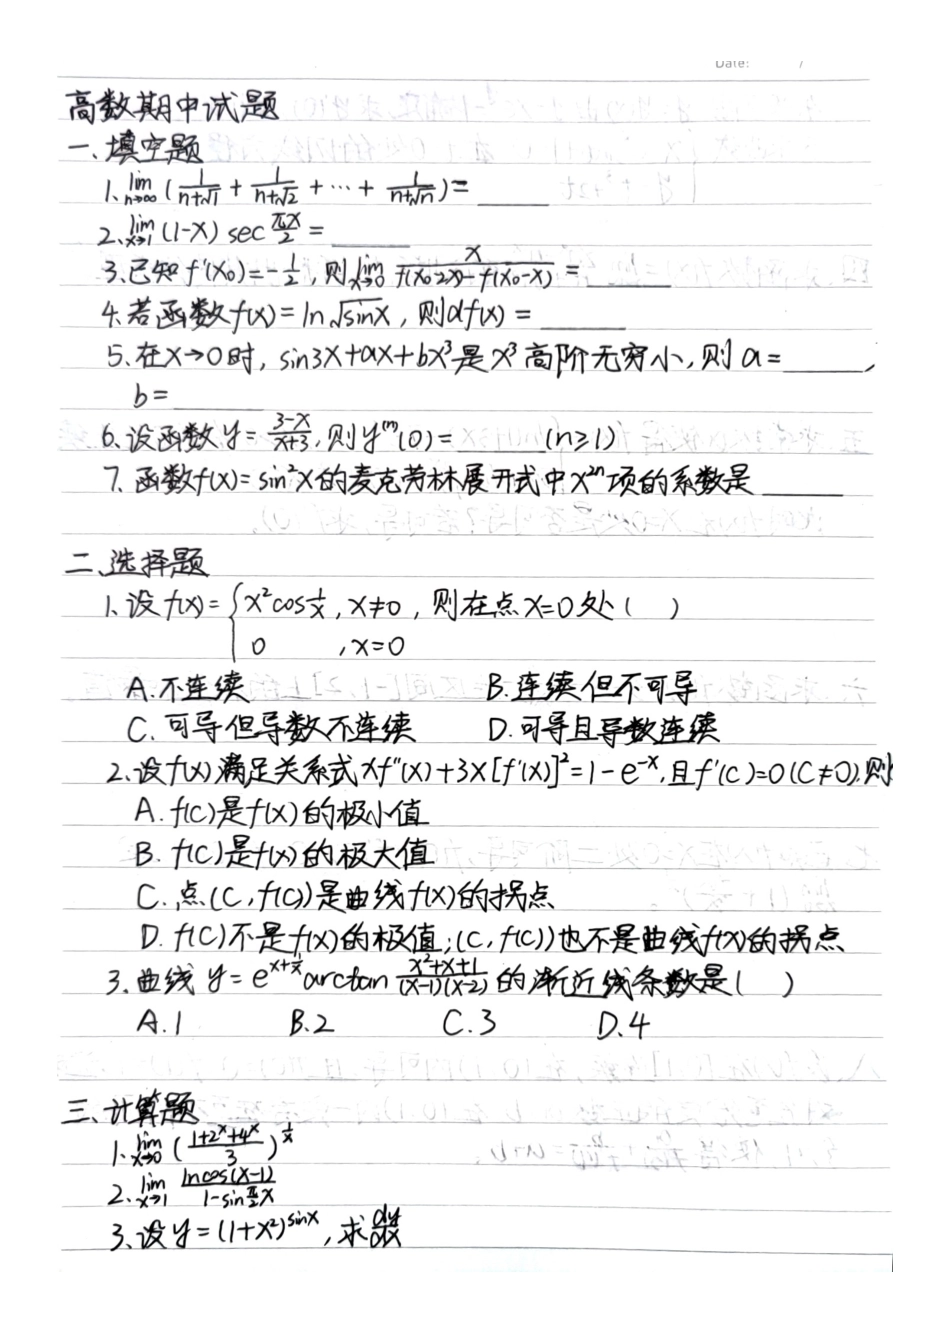 Date: /
高数期中试题
一、填空题
1. lim n→∞ (1/(n+√1) + 1/(n+√2) + ⋯ + 1/(n+√n)) = ____
2. lim x→1 (1-x) sec πx/2 = ____
3. 已知 f'(x₀) = -1/2, 则 lim x→0 x/(f(x₀-2x)-f(x₀-x)) = ____
4. 若函数 f(x) = ln √sinx, 则 df(x) = ____
5. 在 x→0 时, sin3x+ax+bx³ 是 x³ 高阶无穷小, 则 a = ____,
b = ____
6. 设函数 y = (3-x)/(x+3), 则 y⁽ⁿ⁾(0) = ____ (n≥1)
7. 函数 f(x) = sin²x 的麦克劳林展开式中 x²ⁿ 项的系数是 ____
二、选择题
1. 设 f(x) = { x²cos 1/x, x≠0, 则在点 x=0 处 ( )
0 , x=0
A. 不连续 B. 连续但不可导
C. 可导但导数不连续 D. 可导且导数连续
2. 设 f(x) 满足关系式 xf''(x)+3x[f'(x)]²=1-e⁻ˣ, 且 f'(c)=0 (c≠0), 则
A. f(c) 是 f(x) 的极小值
B. f(c) 是 f(x) 的极大值
C. 点 (c, f(c)) 是曲线 f(x) 的拐点
D. f(c) 不是 f(x) 的极值; (c, f(c)) 也不是曲线 f(x) 的拐点
3. 曲线 y = e^(x+1/x) arctan (x²+x+1)/((x-1)(x-2)) 的渐近线条数是 ( )
A. 1 B. 2 C. 3 D. 4
三、计算题
1. lim x→0 ((1+2ˣ+4ˣ)/3)^(1/x)
2. lim x→1 lncos(x-1)/(1-sin π/2 x)
3. 设 y = (1+x²)^sinx, 求 dy/dx